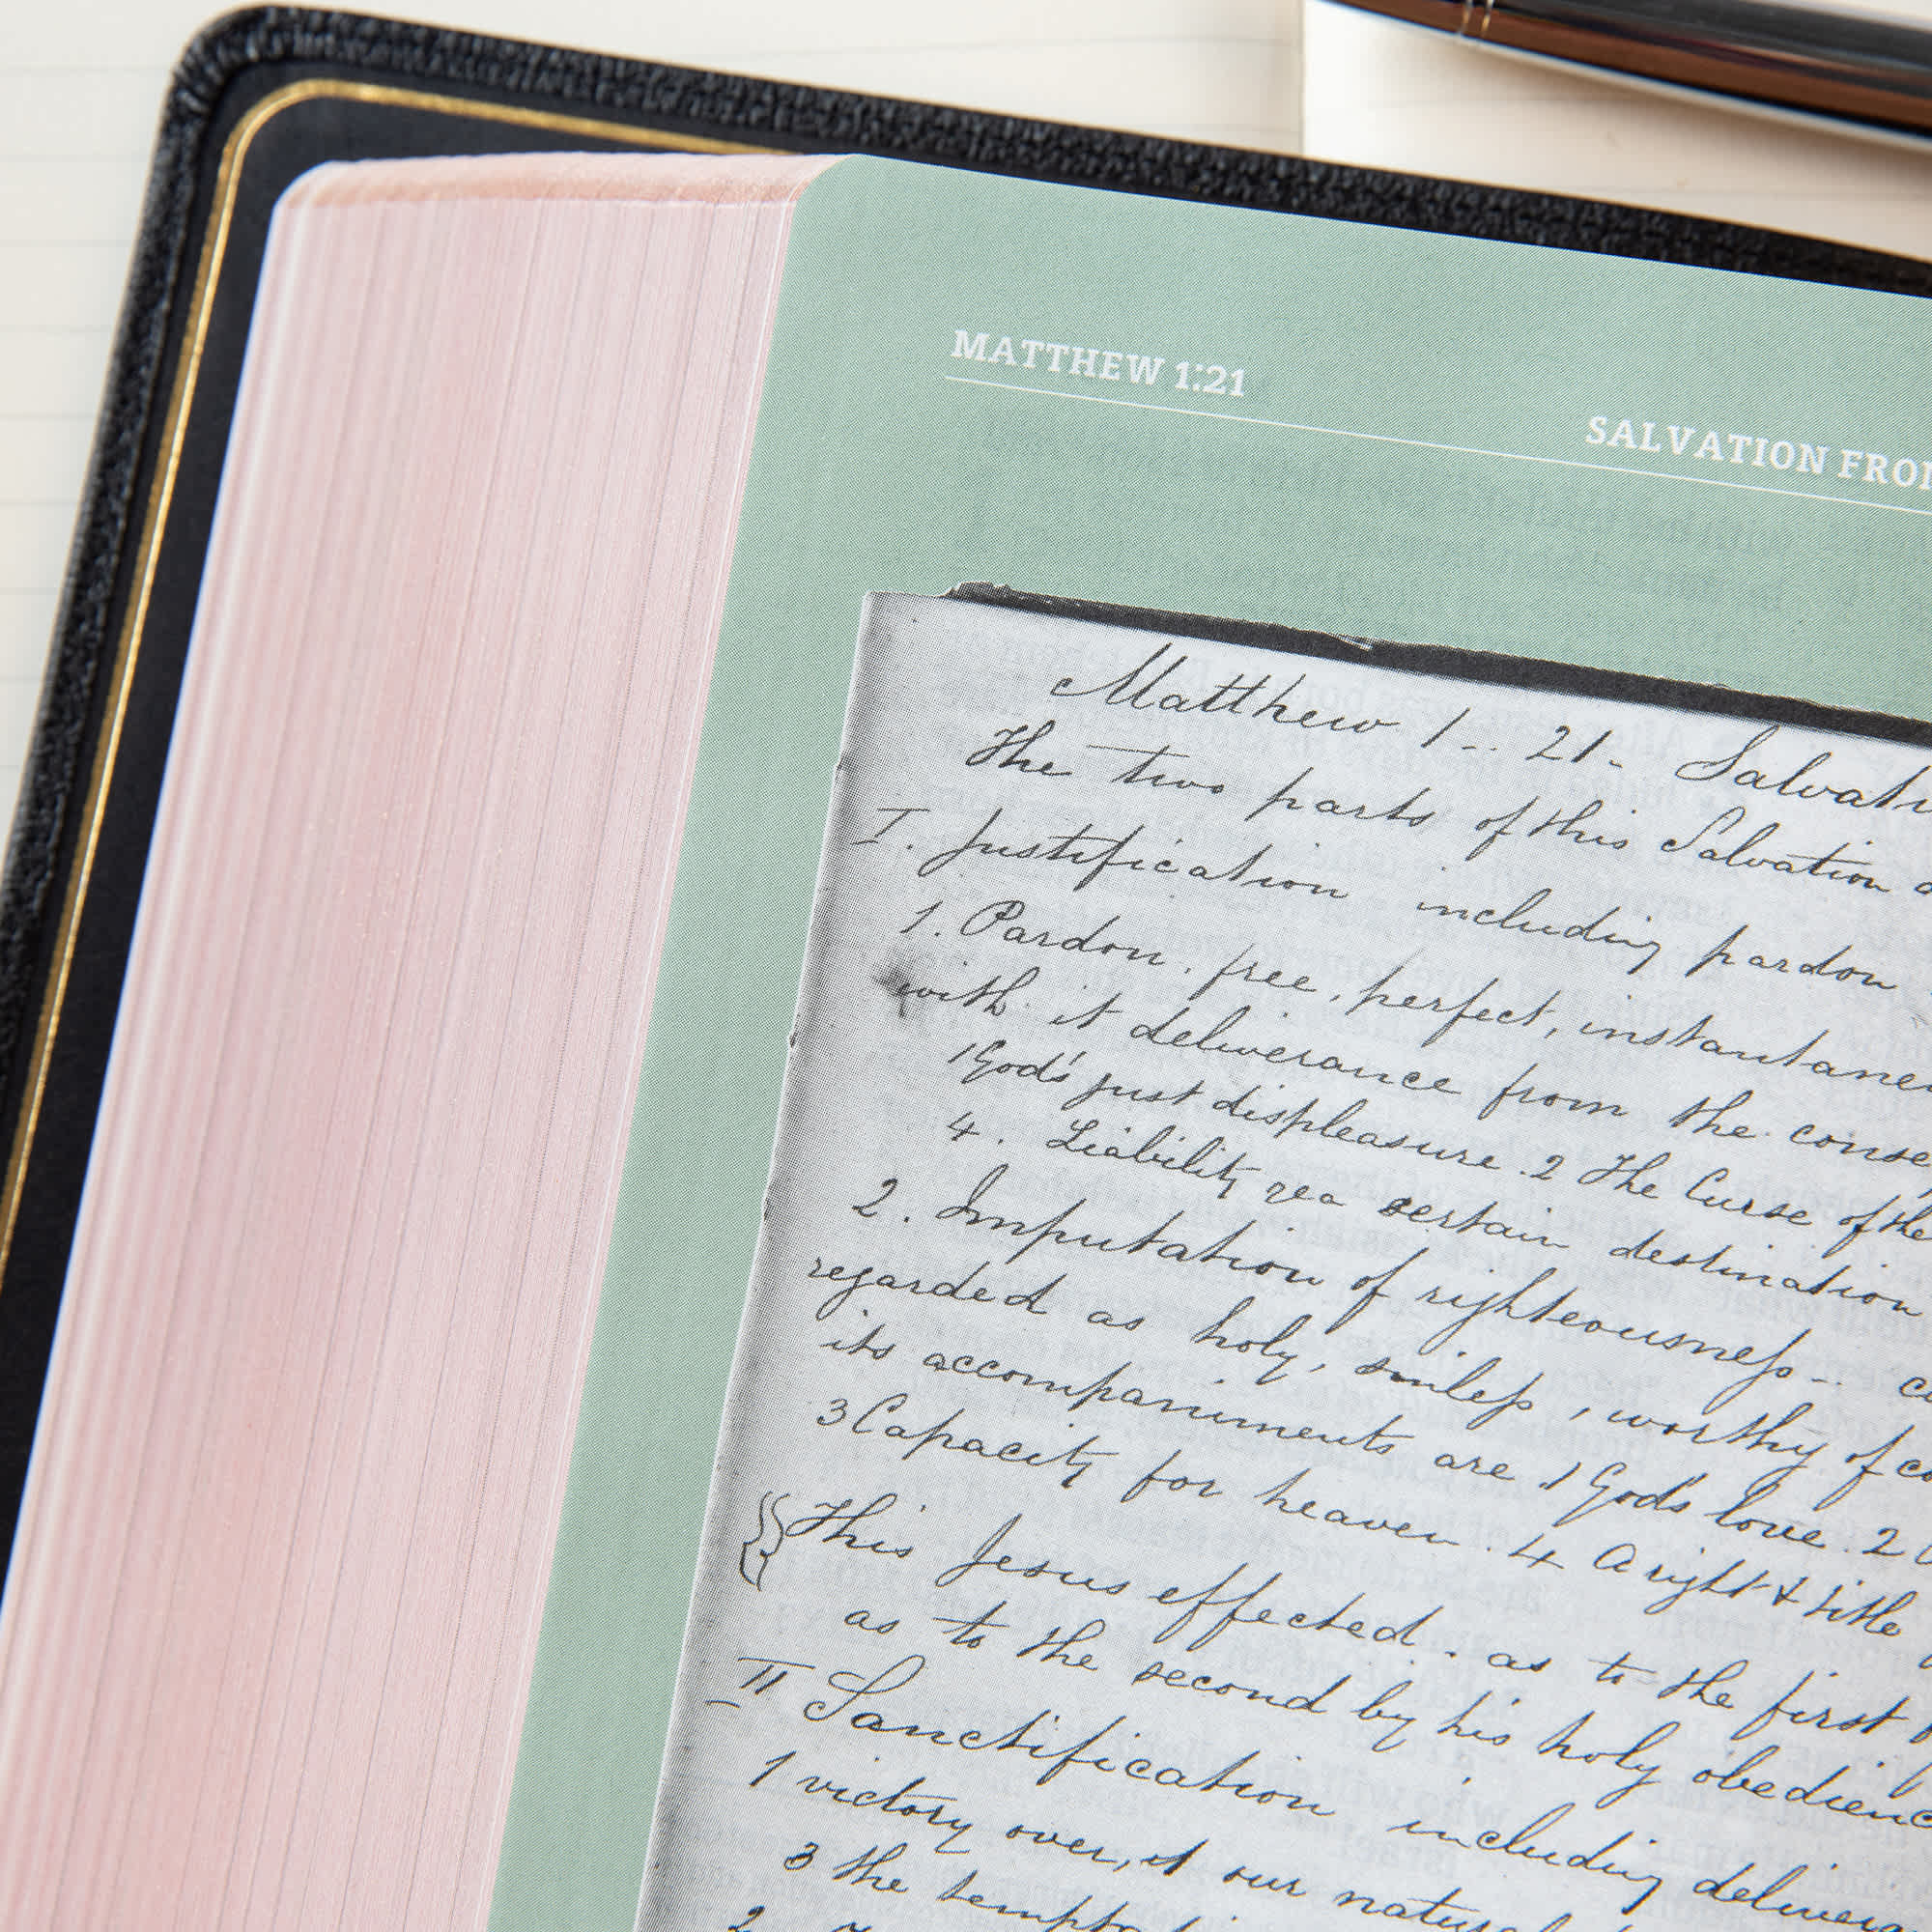 MATTHEW 1:21
SALVATION FRO
Matthew 1 -- 21 - Salvati
The two parts of this Salvation
I. Justification including pardon
1. Pardon. free, perfect, instantane
with it deliverance from the conse
1 God's just displeasure. 2 The Curse of the
4. Liability certain destination
2. Imputation of righteousness --
regarded as holy, smiless, worthy of co
its accompaniments are 1 Gods love. 2
3 Capacity for heaven. 4 A right & title
This Jesus effected. as to the first
as to the second by his holy obedienc
II Sanctification including delivera
1 victory over, it our natur
3 the tempta
2.